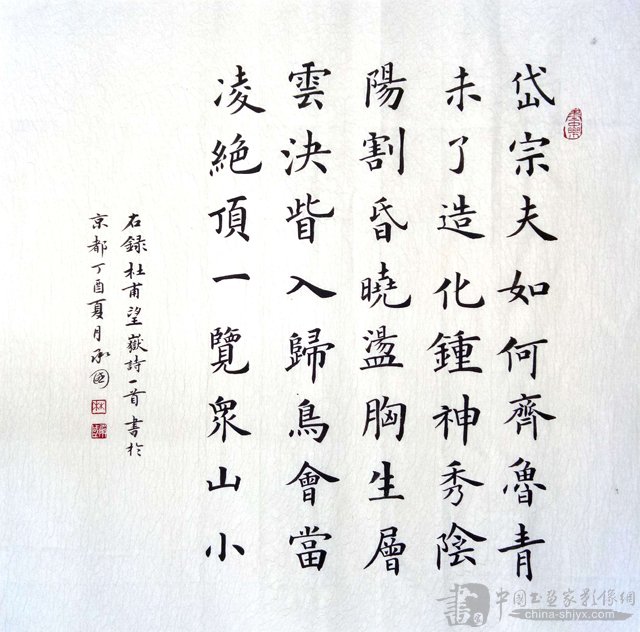 岱宗夫如何齊魯青
未了造化鍾神秀陰
陽割昏曉盪胸生層
雲決眥入歸鳥會當
凌絕頂一覽眾山小
右録杜甫望嶽詩一首書於
京都丁酉夏月承國
中国书画家影像網
china-shjyx.com